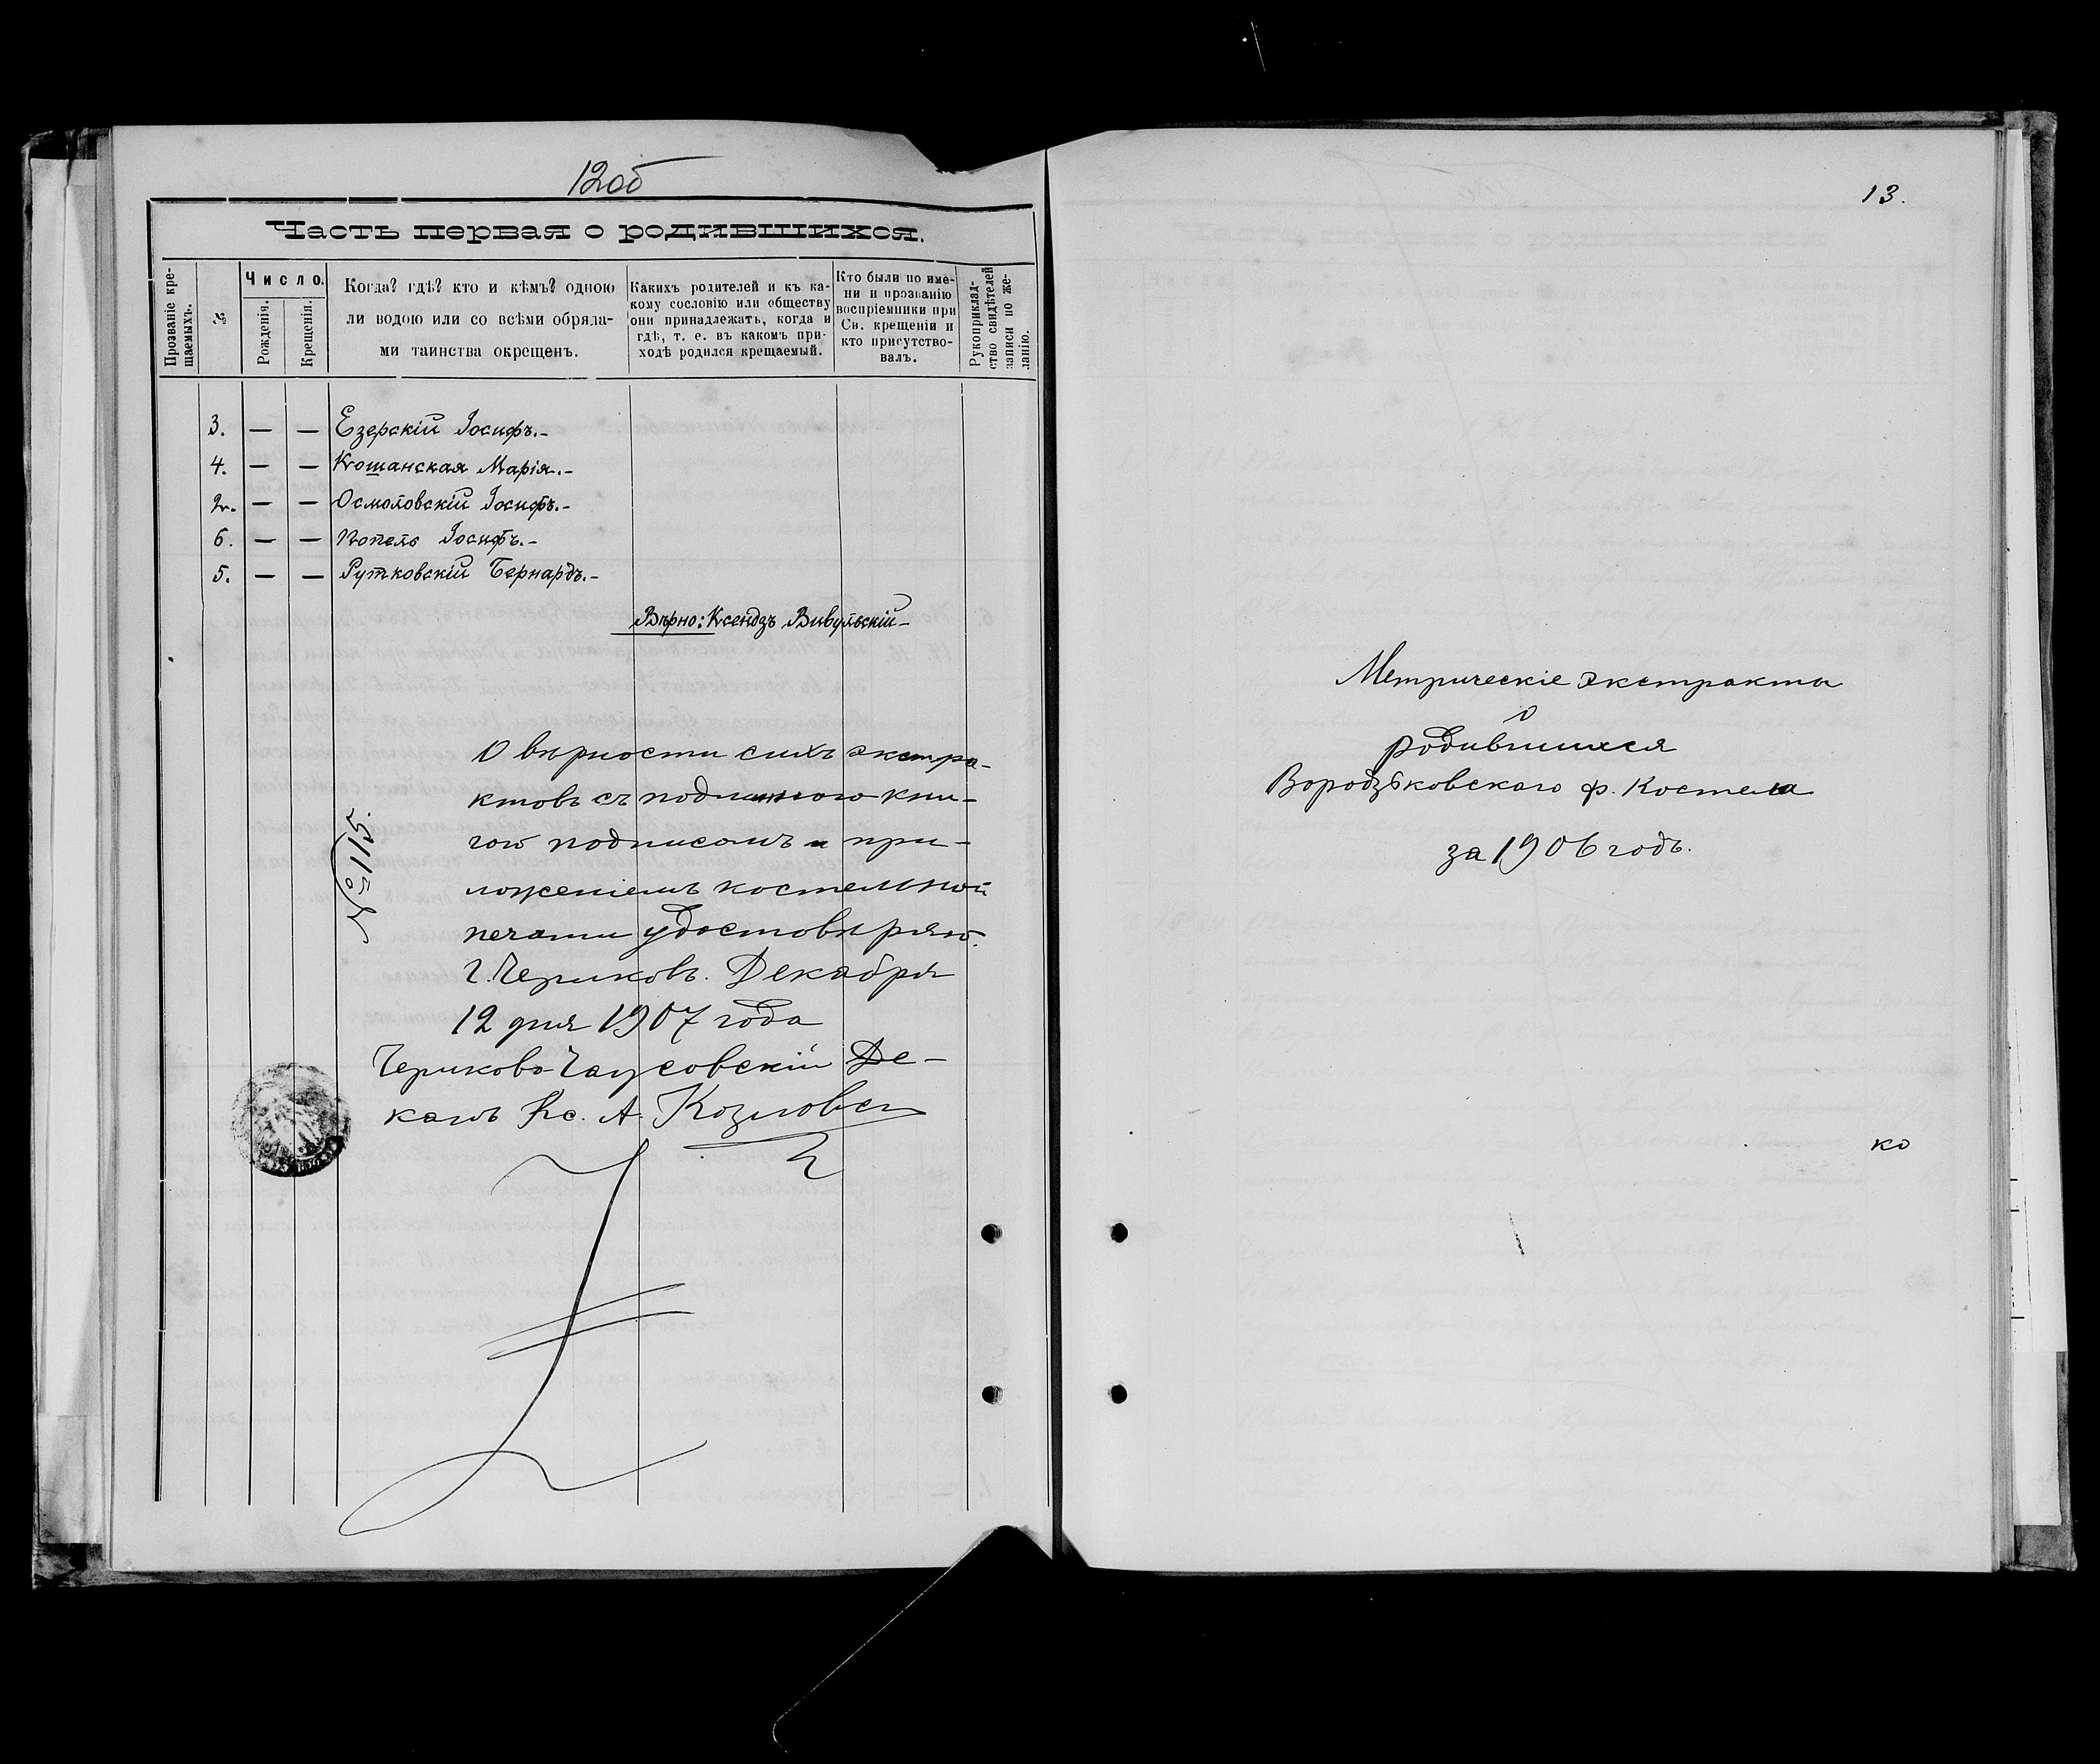 12об
Часть первая о родившихся.
Прозваніе кре-
щаемыхъ.
№
Число.
Рожденія.
Крещенія.
Когда? гдѣ? кто и кѣмъ? одною
ли водою или со всѣми обряда-
ми таинства окрещенъ.
Какихъ родителей и къ ка-
кому сословію или обществу
они принадлежатъ, когда и
гдѣ, т. е. въ какомъ при-
ходѣ родился крещаемый.
Кто были по име-
ни и прозванію
воспріемники при
Св. крещеніи и
кто присутство-
валъ.
Рукоприклад-
ство свидѣтелей
записи по же-
ланію.
3. — — Езерскій Іосифъ.-
4. — — Кошанская Марія.-
2. — — Осмоловскій Іосифъ.-
6. — — Попель Іосифъ.-
5. — — Рутковскій Бернардъ.-
Вѣрно: Ксендзъ Вивульскій-
О вѣрности сихъ экстра-
ктовъ съ подлинною кни-
гою подписомъ и при-
ложеніемъ костельной
печати удостовѣряю.
г. Чериковъ. Декабря
12 дня 1907 года
№ 115.
Чериково-Чаусовскій Де-
канъ Кс. А. Козловск
13.
Метрическіе экстракты
о
родившихся
Вородзьковскаго ф. Костела
за 1906 годъ.
ко